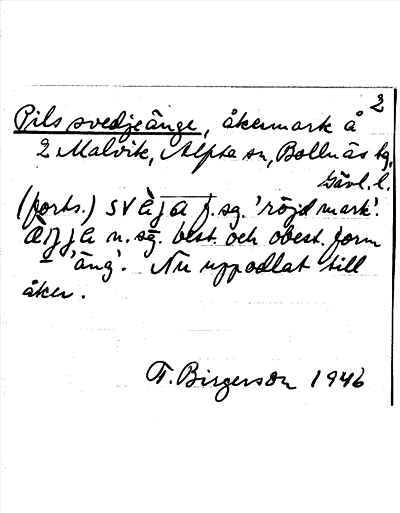 2
Pils svedjeänge, åkermark å
2 Malvik, Alfta sn, Bollnäs tg,
Gävl. l.
(forts.) svɛ̀ja f. sg. 'röjd mark'.
n. sg. best. och obest. form
'äng'. Nu uppodlat till
åker.
T. Birgerson 1946